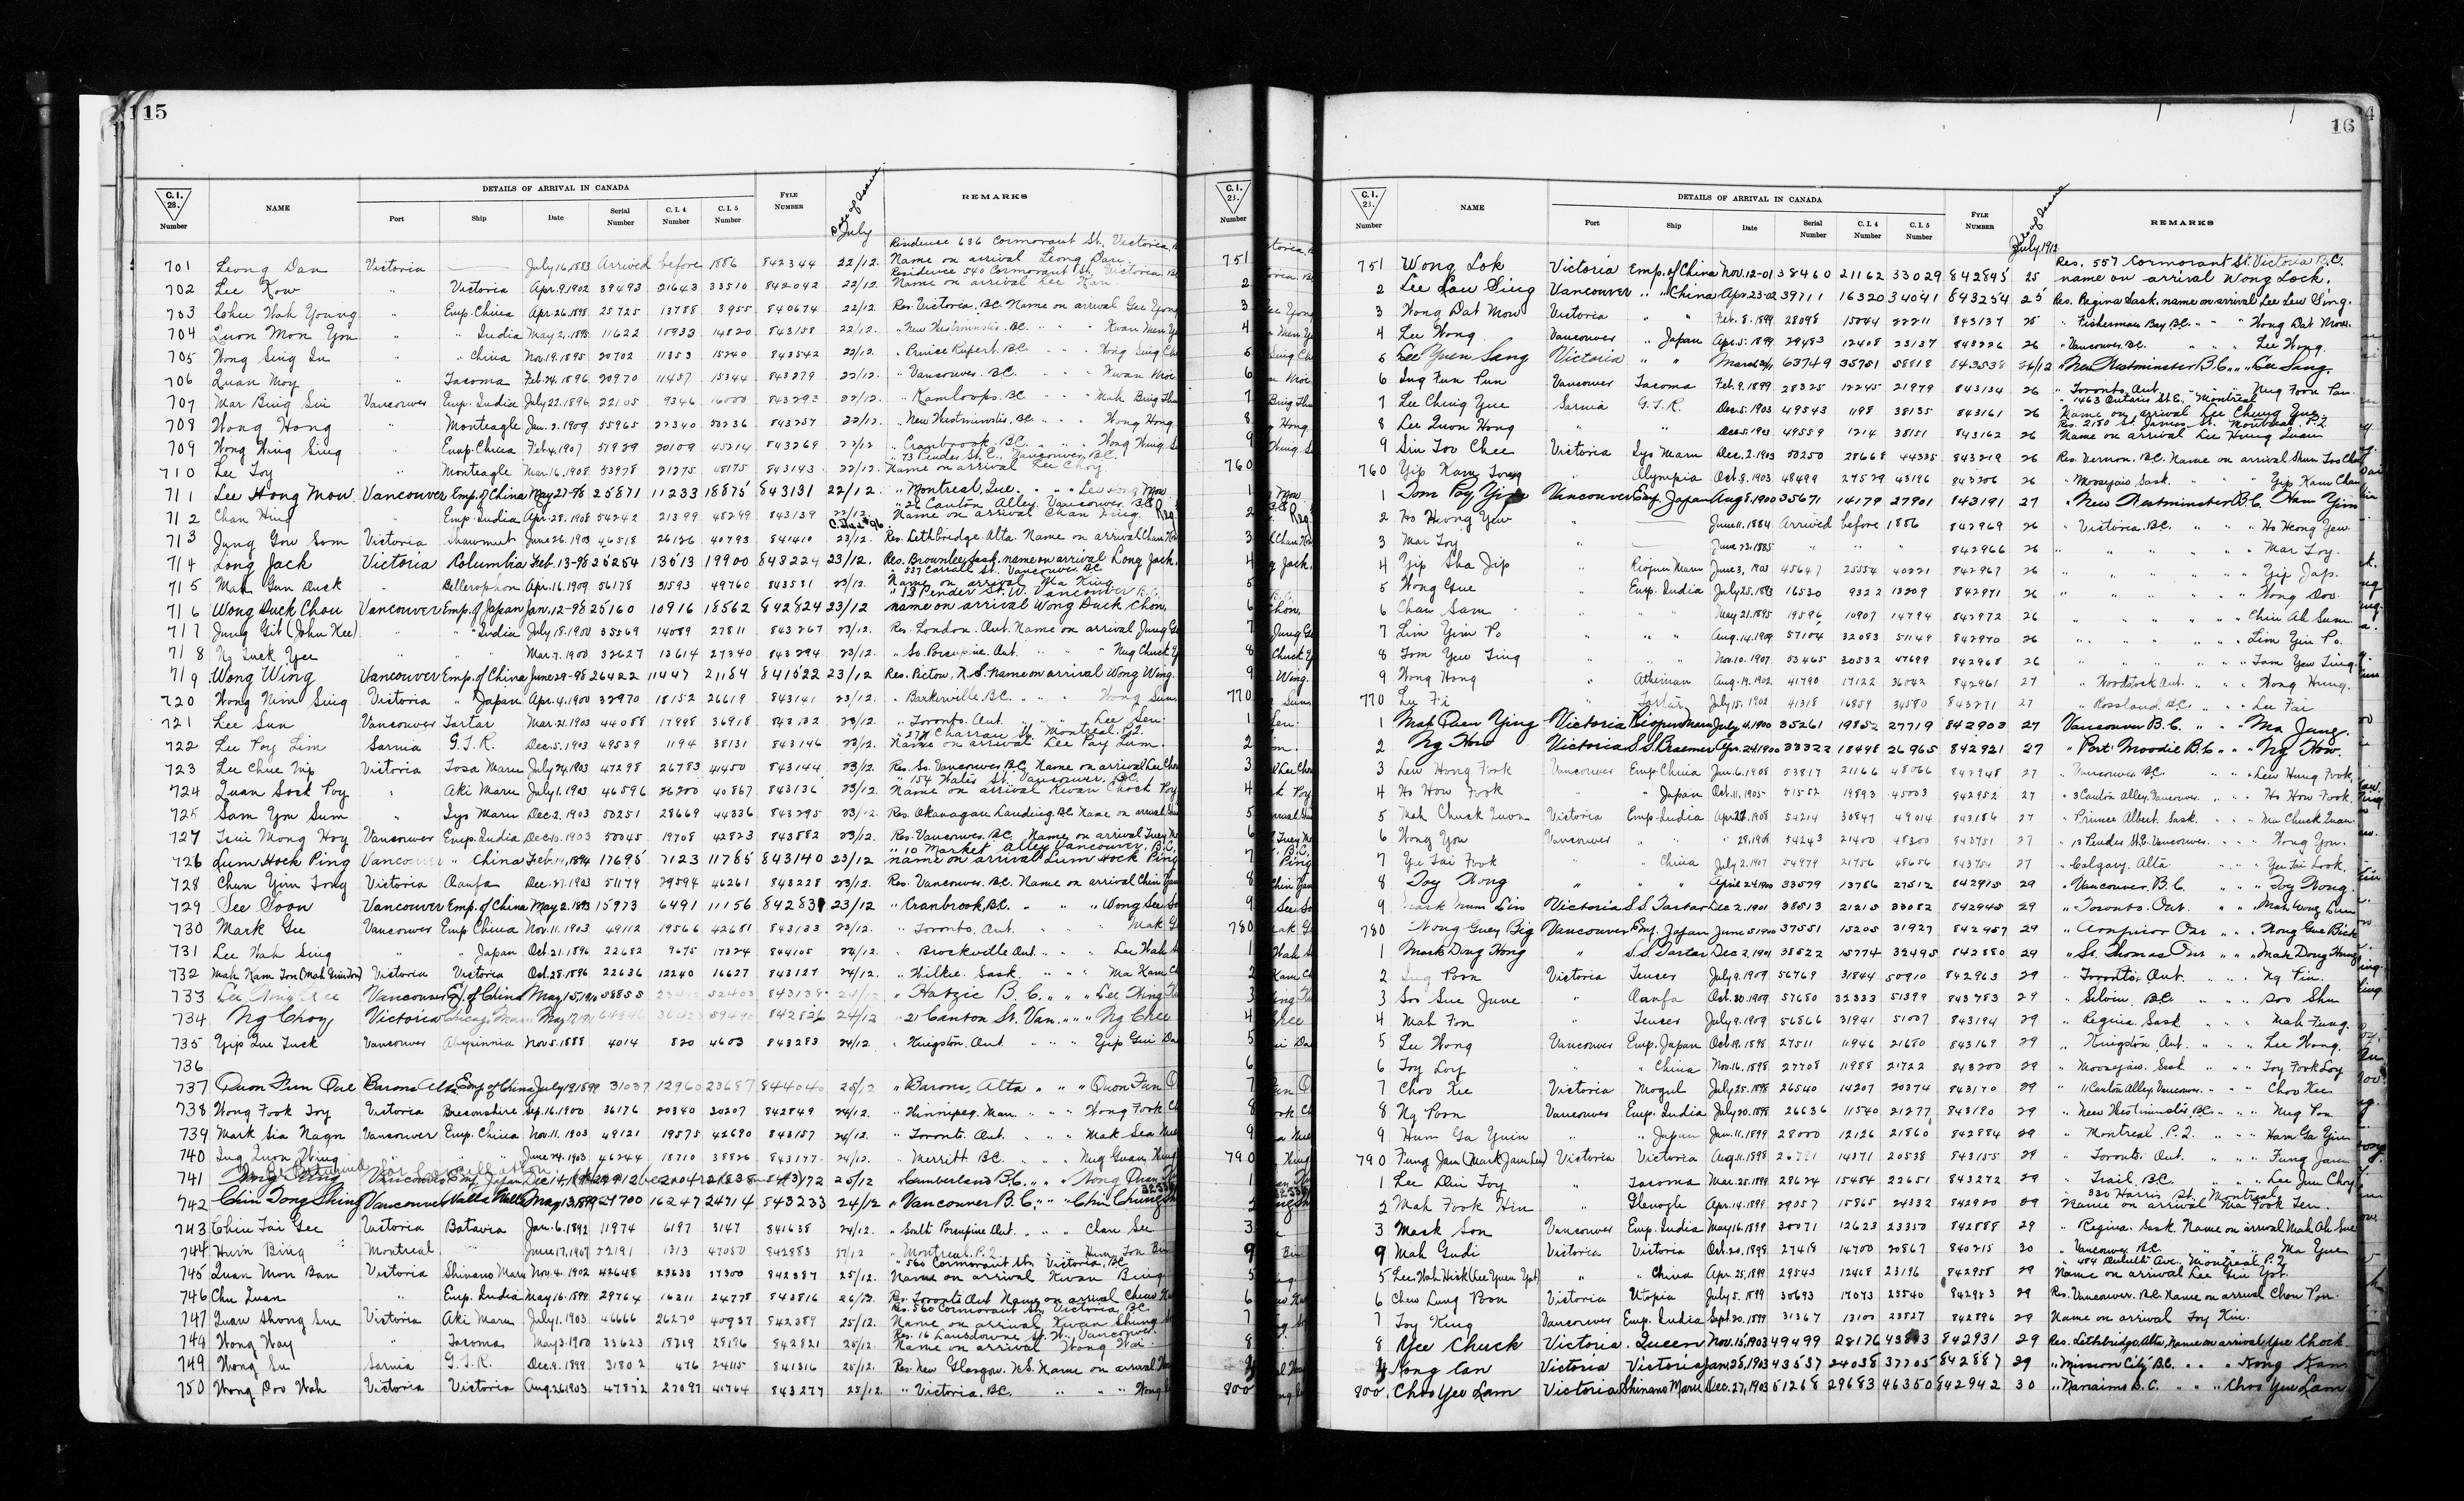 15
C. I. 28. Number
NAME
DETAILS OF ARRIVAL IN CANADA
Port Ship Date Serial Number C. I. 4 Number C. I. 5 Number
FYLE NUMBER
Date of Issue
July
REMARKS
Residence 636 Cormorant St., Victoria,
701 Leong Dan Victoria — July 16, 1883 Arrived before 1886 842344 22/12. Name on arrival Leong Dan.
Residence 540 Cormorant St. Victoria BC
702 Lee Kow " Victoria Apr. 9. 1902 39493 21643 33510 842042 22/12. Name on arrival Lee Kau.
703 Chee Wah Young " Emp. China Apr. 26. 1898 25725 13788 3955 840674 22/12 Res. Victoria. BC. Name on arrival Gee Yon
704 Quon Mon You " " India May 2. 1895 11622 10933 14820 843158 22/12. " New Westminster. BC. " " " Kwan Men Y
705 Wong Sing Iu " " China Nov. 19. 1895 20702 11353 15240 843542 22/12. " Prince Rupert. BC " " " Wong Sing Ch
706 Quan Moy " Tacoma Feb. 24. 1896 20970 11457 15344 843279 22/12. " Vancouver. BC. " " " Kwan Moi
707 Mar Bing Sui Vancouver Emp. India July 22. 1896 22105 9346 16000 843293 22/12. " Kamloops. BC " " " Mah Bing Thu
708 Wong Hong " Monteagle Jan. 2. 1909 55965 22340 50236 843257 22/12. " New Westminster. BC " " " Wong Hong
709 Wong Wing Sing " Emp. China Feb. 4. 1907 51929 20109 45214 843269 22/12 " Cranbrook. BC. " " " Wong Wing S
" 73 Pender St. E., Vancouver BC.
710 Lee Toy " Monteagle Mar. 16. 1908 53978 21275 48175 843143 22/12. Name on arrival Lee Choy
711 Lee Hong Mow Vancouver Emp. of China May 27-98 25871 11233 18875 843131 22/12. " Montreal, Que. " " " Lee Hong Mow
" 26 Canton Alley. Vancouver. BC
712 Chan Hing " Emp. India Apr. 28. 1908 54242 21399 48249 843139 22/12. Name on arrival Chan Hing.
713 Jung Gow Som Victoria Shawmut June 26. 1903 46518 26126 40793 841410 23/12. Res. Lethbridge. Alta. Name on arrival Chan
714 Long Jack Victoria Columbia Feb. 13-98 25254 13613 19900 843224 23/12. Res. Brownlee Sask. name on arrival Long Jack.
" 537 Carrall St. Vancouver BC
715 Mah Gun Duck " Bellerophon Apr. 16. 1909 56178 31593 49760 843531 23/12. Name on arrival Ma King
" 13 Pender St. W. Vancouver B.C.
716 Wong Duck Chou Vancouver Emp. of Japan Jan. 12-98 25160 10916 18562 842824 23/12 name on arrival Wong Duck Chon.
717 Jung Git (John Kee) " " India July 18. 1900 35569 14089 27811 843267 23/12. Res. London. Ont. Name on arrival Jung G
718 Ng Tuck Yee " " " Mar. 7. 1900 32627 13614 27340 843294 23/12. " So. Porcupine. Ont. " " " Nug Chuck Y
719 Wong Wing Vancouver Emp. of China June 29-98 26422 11447 21184 841522 23/12 Res. Pictou, N.S. Name on arrival Wong Wing.
720 Wong Nim Sing Victoria " Japan Apr. 4. 1900 32970 18152 26619 843141 23/12. " Barkerville. BC. " " " Wong Sum
721 Lee Sun Vancouver Tartar Mar. 21. 1903 44088 17998 36918 843132 23/12. " Toronto. Ont. " " " Lee Sen.
722 Lee Poy Lim Sarnia G.T.R. Dec. 5. 1903 49539 1194 38131 843146 23/12. Name on arrival Lee Pay Lum.
723 Lee Chue Nip Victoria Tosa Maru July 24. 1903 47298 26783 41450 843144 23/12. Res. So. Vancouver BC. Name on arrival Lee Cho
" 154 Wales St. Vancouver. BC.
724 Quan Sook Poy " Aki Maru July 1. 1903 46596 26200 40867 843136 23/12. Name on arrival Kwan Chock Poy
725 Sam You Sum " Iyo Maru Dec. 2. 1903 50251 28669 44336 843295 23/12. Res. Okanagan Landing. BC Name on arrival
727 Tsui Mong Hoy Vancouver Emp. India Dec. 10. 1903 50045 19708 42823 843882 23/12. Res. Vancouver. BC. Name on arrival Tuey M
" 10 Market Alley Vancouver. B.C.
726 Lum Hock Ping Vancouver " China Feb. 14, 1894 17695 7123 11785 843140 23/12 name on arrival Lum Hock Ping
728 Chun Yim Tong Victoria Oanfa Dec. 27. 1903 51179 29594 46261 843228 23/12. Res. Vancouver. BC. Name on arrival Chin Yan
729 See Soon Vancouver Emp. of China May 2. 1893 15973 6491 11156 842831 23/12 " Cranbrook, B.C. " " " Wong See S
730 Mark Gee Vancouver Emp China Nov. 11. 1903 49112 19566 42681 843133 23/12. " Toronto. Ont. " " Mak G
731 Lee Wah Sing " " Japan Oct. 21. 1896 22682 9675 17324 844105 24/12. " Brockville Ont. " " " Lee Wah
732 Mah Kam Ton (Mah Guin Don) Victoria Victoria Oct. 28. 1896 22636 12240 16627 843127 24/12. " Wilkie. Sask. " " " Ma Kam C
733 Lee Wing Kee Vancouver E/. of China May 15, 1910 58855 52403 843138 24/12 " Hatzic B.C. " " " Lee Wing
734 Ng Choy Victoria Chicago Maru May 17, 1911 64846 842826 24/12 " 21 Canton St. Van. " " " Ng Chee
735 Yip Que Tuck Vancouver Abyssinia Nov. 5. 1888 4014 820 4603 843283 24/12. " Kingston Ont " " " Yip Gui Da
736
737 Quon Fun Que Barons Alta Emp. of China July 19, 1899 31037 12960 23687 844040 25/12 " Barons, Alta " " " Quon Fun
738 Wong Fook Toy Victoria Breconshire Sep. 16. 1900 36176 20340 30207 842849 24/12. " Winnipeg. Man. " " " Wong Fook C
739 Mark Sia Nagn Vancouver Emp. China Nov. 11. 1903 49121 19575 42690 843157 24/12. " Toronto. Ont. " " " Mak Sea
740 Ing Quon Wing " " June 24. 1903 46244 18710 38826 843177 24/12. " Merritt BC. " " " Nug Guan
741 Vancouver Emp. Japan 843172 25/12 " Cumberland B.C. " " " Wong Quan
742 Chin Dong Shing Vancouver Walla Walla May 13, 1899 29700 16247 24714 843233 24/12 " Vancouver B.C. " " " Chin Chung
743 Chin Tai Gee Victoria Batavia Jan. 6. 1892 11974 6197 3147 841638 24/12. " South Porcupine Ont. " " " Chan See
744 Hum Bing Montreal June 17, 1907 52191 1313 47050 842883 27/12 " Montreal. P.Q. " " Hum Jon Bin
" 560 Cormorant St. Victoria, BC
745 Quan Mon Ban Victoria Shinano Maru Nov. 4. 1902 42648 23633 37300 842387 25/12. Name on arrival Kwan Bing
746 Chu Quan " Emp. India May 16. 1899 29764 16311 24778 843816 26/12. Res. Toronto Ont Name on arrival Chew
Res. 560 Cormorant St. Victoria BC
747 Quan Shong Sue Victoria Aki Maru July 1. 1903 46666 26270 40937 842389 25/12. Name on arrival Kwan Shung
Res. 16 Lansdowne St. W., Vancouver.
748 Wong Way " Tacoma May 3. 1900 33623 18729 28196 842821 25/12. Name on arrival Wong Wai
749 Wong Su Sarnia G.T.R. Dec. 9. 1899 31802 476 24115 841316 25/12. Res. New Glasgow. NS. Name on arrival
750 Wong Doo Wah Victoria Victoria Aug. 26. 1903 47872 27097 41764 843277 25/12. " Victoria. BC. " " " Wong
16
C. I. 28. Number
NAME
DETAILS OF ARRIVAL IN CANADA
Port Ship Date Serial Number C. I. 4 Number C. I. 5 Number
FYLE NUMBER
Date of Issue
July 1912
REMARKS
Res. 557 Cormorant St. Victoria B.C.
751 Wong Lok Victoria Emp. of China Nov. 12-01 38460 21162 33029 842845 25 name on arrival Wong Lock.
2 Lee Lau Sing Vancouver " " China Apr. 23-02 39711 16320 34041 843254 25 Res. Regina Sask, name on arrival Lee Lew Sing.
3 Wong Dat Mow Victoria " " Feb. 8. 1899 28098 15044 22211 843137 25 " Fisherman Bay B.C. " " Wong Dat Mow.
4 Lee Wong Vancouver " Japan Apr. 5. 1899 29483 12408 23137 843226 26 " Vancouver. BC. " " " Lee Wong.
5 Lee Yuen Sang Victoria " " March 63749 35751 58818 843538 26/12 " New Westminster B.C. " " " Lee Sang.
6 Ing Fun Pun Vancouver Tacoma Feb. 9. 1899 28325 12245 21979 843134 26 " Toronto. Ont. " " " Nug Foon Pan.
" 1463 Ontario St. E., Montreal
7 Lee Ching Yue Sarnia G.T.R. Dec. 5. 1903 49543 1198 38135 843161 26 Name on arrival Lee Cheung Yue.
Res. 2180 St. James St. Montreal P.Q.
8 Lee Quon Hong " " Dec. 5. 1903 49559 1214 38151 843162 26 Name on arrival Lee Hung Quan
9 Sin Too Chee Victoria Iyo Maru Dec. 2. 1903 50250 28668 44335 843219 26 Res. Vernon. BC. Name on arrival Shum Too
760 Yip Kam Tong " Olympia Oct. 8. 1903 48499 27529 43196 843206 26 " Moosejaw Sask. " " " Yip Kam Chan
1 Tom Poy Yim Vancouver Emp. Japan Aug 8, 1900 35671 14179 27901 843191 27 " New Westminster B.C. Ham Yim
2 Ho Heong Yew " — June 11. 1884 Arrived before 1886 842969 26 " Victoria. BC. " " " Ho Heong Yew
3 Mar Toy " — June 23. 1885 " " " 842966 26 " " " " " Mar Toy.
4 Yip Sha Jip " Riojun Maru June 3, 1903 45647 25554 40221 842967 26 " " " " " Yip Jap.
5 Wong Gue " Emp. India July 25. 1893 16530 9322 13209 842971 26 " " " " " Wong Doo.
6 Chan Sam " " " May 21. 1895 19596 10907 14794 842972 26 " " " " " Chin Ah Sum
7 Lim Yim Po " " " Aug. 14. 1909 57104 32083 51149 842970 26 " " " " " Lim Yin Po.
8 Tom Yew Ting " " " Nov. 10. 1907 53465 30532 47699 842968 26 " " " " " Tam Yew Ting.
9 Wong Hong " Athenian Aug. 19. 1902 41790 17122 36042 842961 27 " Woodstock Ont. " " " Wong Hung.
770 Lee Fi " Tartar July 15. 1902 41318 16859 34580 843271 27 " Rossland. BC " " " Lee Fai
1 Mah Quen Ying Victoria Riojun Maru July 4. 1900 35261 19852 27719 842903 27 Vancouver B.C. " " " Ma Jung.
2 Ng How Victoria S.S. Braemer Apr. 24. 1900 33322 18498 26965 842921 27 " Port Moodie B.C. " " " Ng How.
3 Lew Hong Fook Vancouver Emp China Jan. 6. 1908 53817 21166 48066 842948 27 " Vancouver. BC " " " Lew Hung Fook
4 Ho How Fook " " Japan Oct. 11. 1905 51552 19893 45003 842952 27 " 3 Canton Alley. Vancouver. " " " Ho How Fook.
5 Mah Chuck Quon Victoria Emp. India Apr. 27. 1908 54214 30847 49014 843186 27 " Prince Albert. Sask. " " " Ma Chuck Quan.
6 Wong You Vancouver " " " 28. 1908 54243 21400 48300 843751 27 " 13 Pender St. E. Vancouver. " " " Wong You.
7 Yee Tai Fook " " China July 2. 1907 54979 21756 48656 843754 27 " Calgary. Alta " " " Yee Tai Look.
8 Toy Wong " " " April 24. 1900 33579 13786 27512 842915 29 " Vancouver. B.C. " " " Toy Wong.
9 Mark Num Lin Victoria S.S. Tartar Dec 2. 1901 38513 21215 33082 842945 29 " Toronto. Ont. " " Mah Wong Linn
780 Wong Guey Big Vancouver Emp. Japan June 5 1900 37551 15205 31927 842957 29 " Arnprior Ont " " " Wong Gue Bick
1 Mark Doug Hong " S.S. Tartar Dec 2. 1901 38522 15774 32495 842880 29 " St. Thomas Ont " " " Mak Dong Hung
2 Ing Poon Victoria Teucer July 9. 1909 56769 31844 50910 842963 29 " Toronto. Ont. " " " Ng Fin.
3 Soo Sue June " Oanfa Oct. 30. 1909 57680 32333 51399 843783 29 " Silvin BC. " " " Soo Shu
4 Mah Fon " Teucer July 9. 1909 56866 31941 51007 843194 29 " Regina. Sask " " " Mah Fung.
5 Lee Wong Vancouver Emp. Japan Oct. 19. 1898 27511 11946 21680 843169 29 " Kingston Ont. " " " Lee Wong.
6 Toy Loy " " China Nov. 16. 1898 27708 11988 21722 843200 29 " Moosejaw. Sask " " " Toy Fook Loy
7 Choo Kee Victoria Mogul July 25. 1898 26540 14207 20374 843170 29 " 11 Canton Alley. Vancouver. " " " Choo Kee
8 Ng Poon Vancouver Emp. India July 20. 1898 26636 11540 21277 843190 29 " New Westminster. BC " " " Nug Pon
9 Hum Ga Yuin " " Japan Jan. 11. 1899 28000 12126 21860 842884 29 " Montreal. P.Q. " " " Ham Ga Yin
790 Fung Jan (Mark Jam Len) Victoria Victoria Aug. 11. 1898 14371 20538 843155 29 " Toronto. Ont. " " " Fung Jan
1 Lee Dui Toy " Tacoma Mar. 25. 1899 28624 15484 22651 843272 29 " Trail. BC. " " " Lee Jun Choy
" 330 Harris St. Montreal
2 Mah Fook Hin " Glenogle Apr. 14. 1899 29057 15865 24332 842920 29 Name on arrival Ma Fook Len.
3 Mack Son Vancouver Emp. India May 16. 1899 30071 12623 23350 842888 29 " Regina. Sask. Name on arrival Mah Ah Sue
9 Mah Gudi Victoria Victoria Oct. 20. 1898 27418 14700 20867 840215 30 " Vancouver B.C. " " " Ma Yue
" 484 Duluth Ave., Montreal. P.Q
5 Lee Wah Hick (Lee Yuen Yat) " " China Apr. 25, 1899 29543 12468 23196 842958 29 Name on arrival Lee Gin Yot.
6 Chew Lung Bon Victoria Utopia July 5. 1899 30693 17073 25540 842953 29 Res. Vancouver. B.C. Name on arrival Chow Pon.
7 Toy King Vancouver Emp. India Sept. 20. 1899 31367 13100 23827 842896 29 Name on arrival Toy Kin.
8 Yee Chuck Victoria. Queen Nov. 15, 1903 49499 28176 43843 842931 29 Res. Lethbridge, Alta, Name on arrival Yee Chock.
9 Kong Can Victoria Victoria Jan. 28, 1903 43537 24038 37705 842887 29 " Mission City B.C. " " " Kong Kan
800 Choo Yee Lam Victoria Shinano Maru Dec. 27, 1903 51268 29683 46350 842942 30 " Nanaimo B.C. " " " Choo Yee Lam